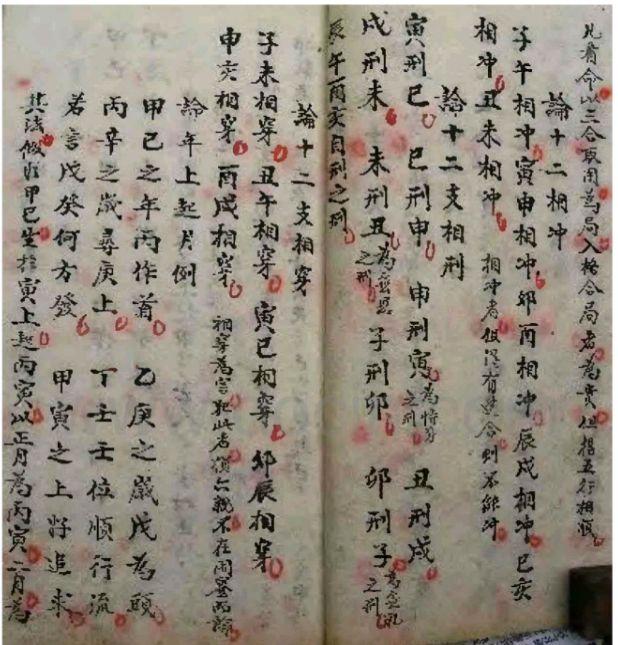 凡看命以三合取用為局入格合局者為貴但揩五行相順
論十二相冲
子午相冲寅申相冲卯酉相冲辰戌相冲巳亥
相冲丑未相冲 相冲者但得有 合則不能冲
論十二支相刑
寅刑巳 巳刑申 申刑寅為恃勢之刑 丑刑戌
戌刑未 未刑丑為 之刑 子刑卯 卯刑子為無礼之刑
辰午酉亥自刑之刑
論十二支相穿
子未相穿 丑午相穿 寅巳相穿 卯辰相穿
申亥相穿 酉戌相穿 相穿為害犯此者 六親不在
論年上起月例
甲己之年丙作首 乙庚之歲戊為頭
丙辛之歲尋庚上 丁壬壬位順行流
若言戊癸何方發 甲寅之上好追求
其法假如甲己生於寅上起丙寅以正月為丙寅二月為